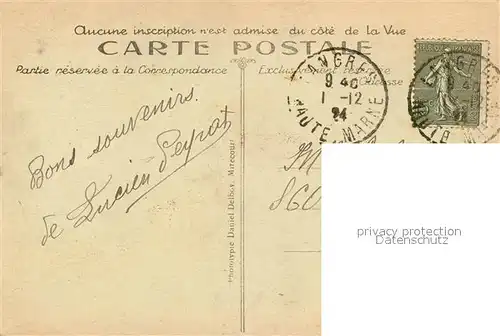 Aucune inscription n'est admise du côté de la Vue
CARTE POSTALE
Partie réservée à la Correspondance
Exclusivement
l'Adresse
LANGRES
9 40
1 -12
24
HAUTE-MARNE
RÉPUBLIQUE FRANÇAISE
Bons souvenirs.
de Lucien Peyrat
Phototypie Daniel Delboy, Mirecourt
M
860
privacy protection
Datenschutz